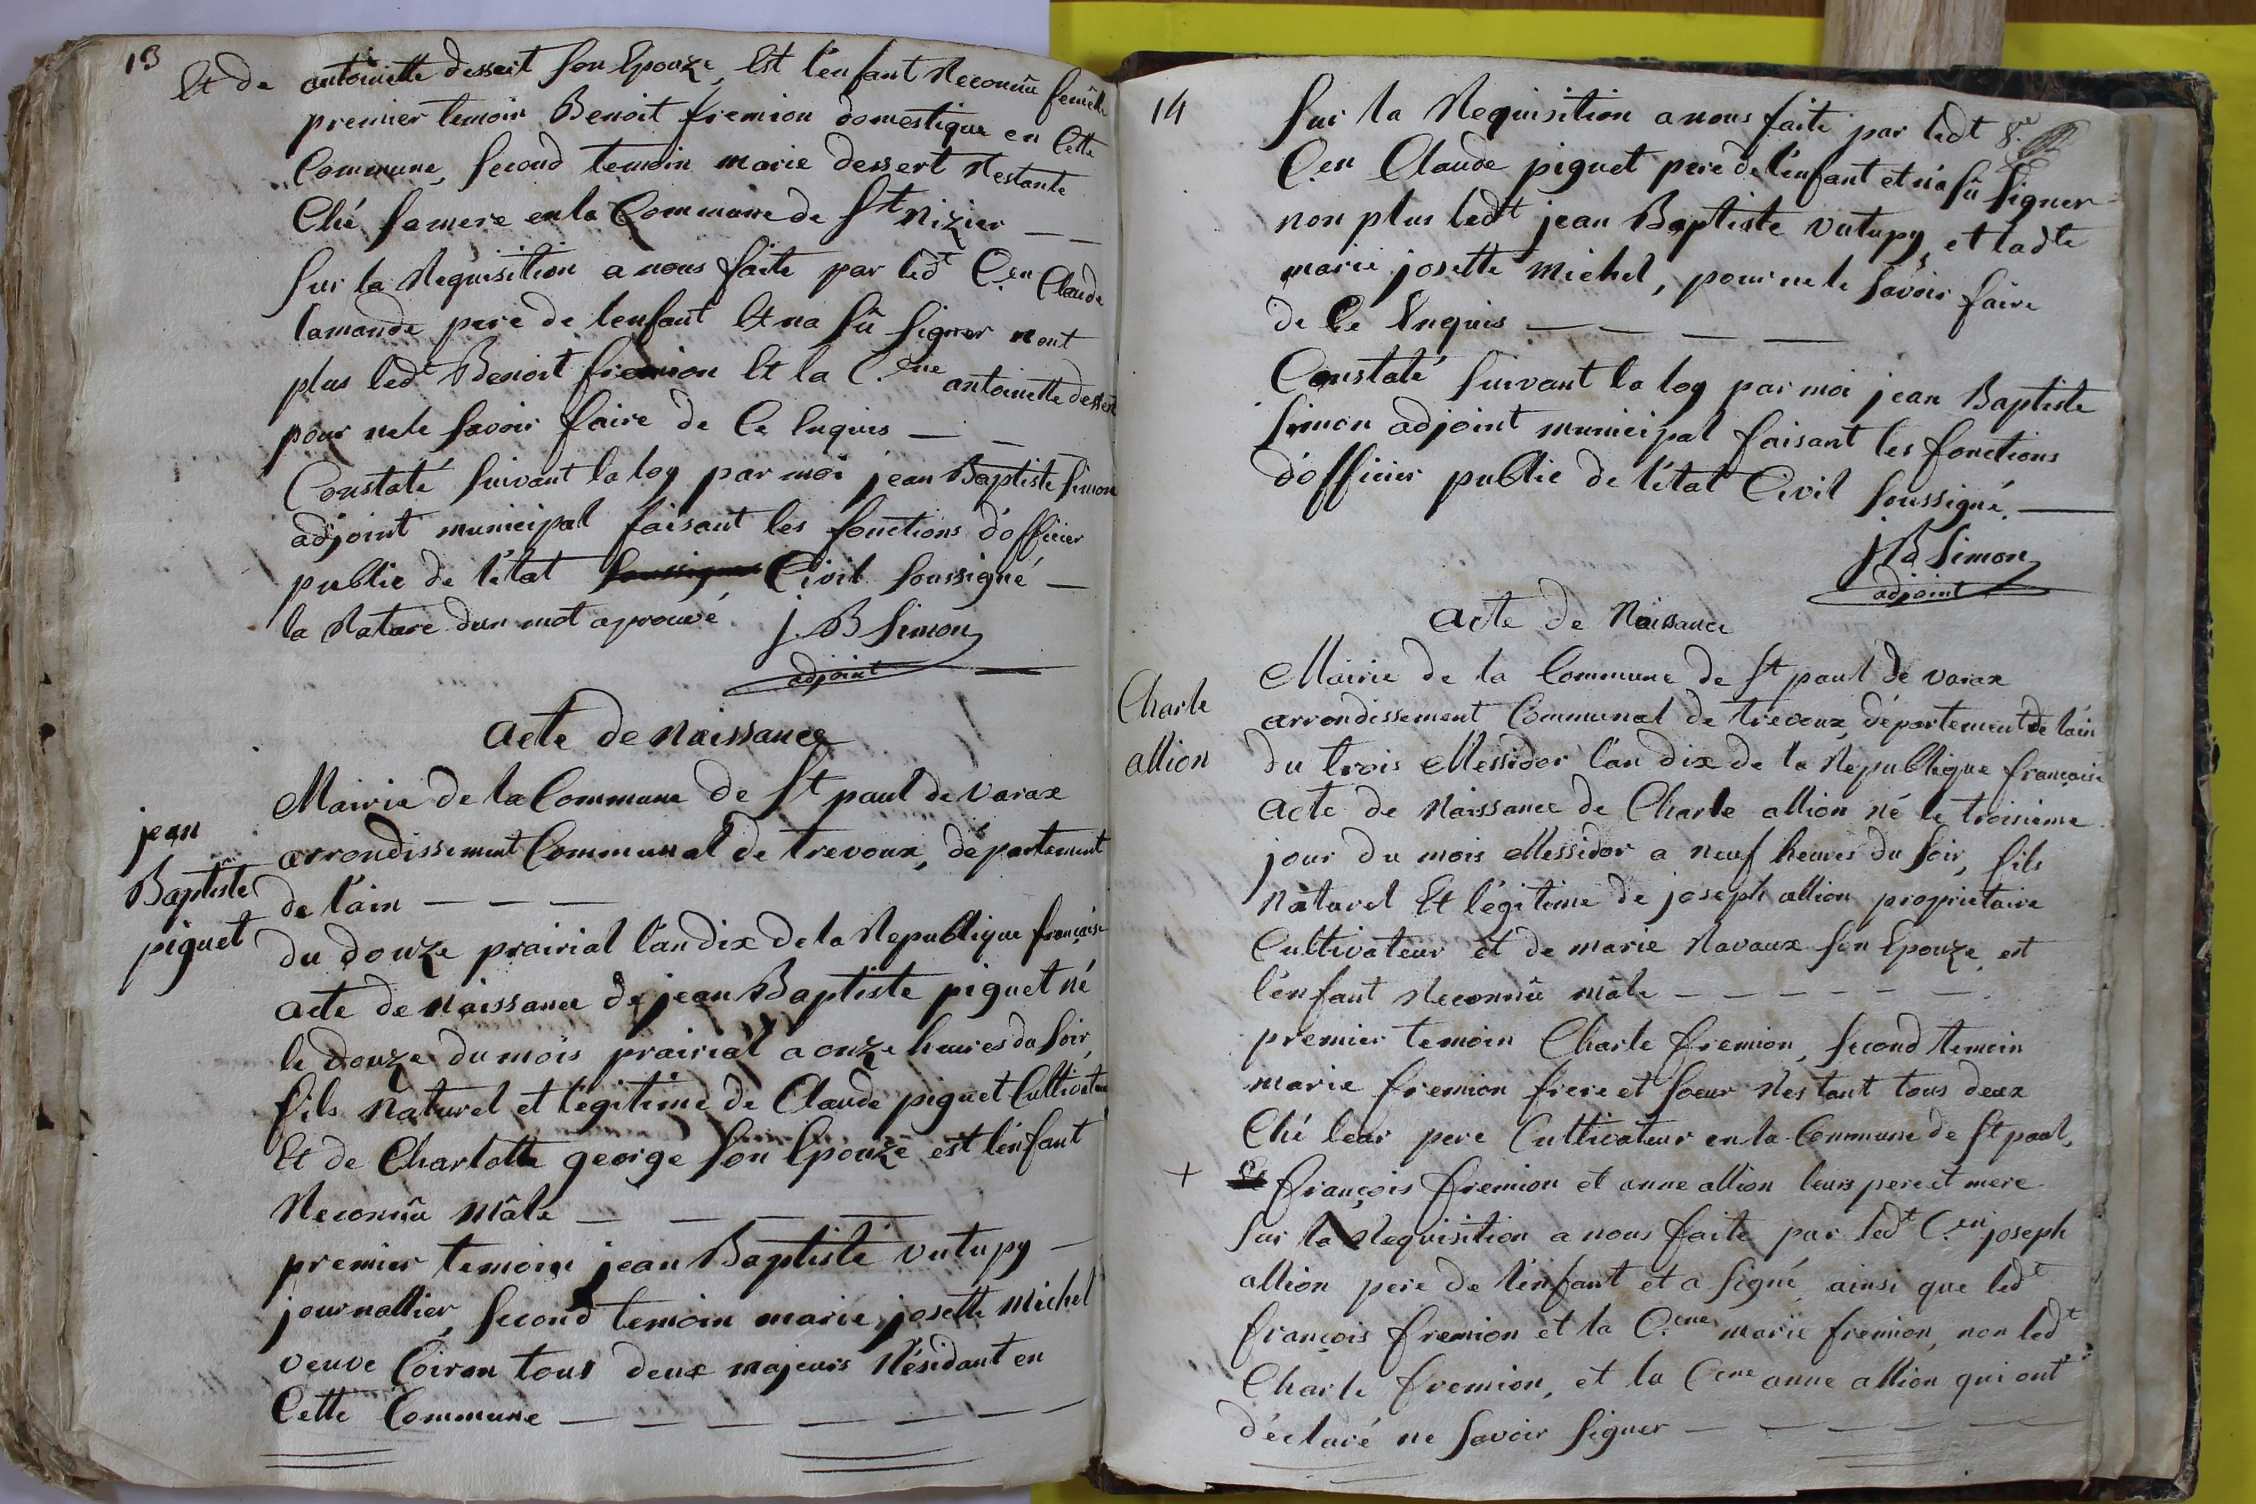 13
Et de antoinette dessert son Epouze, Est l'enfant Reconnu femelle
premier temoin Benoit fremion domestique en Cette
Commune, second temoin marie dessert Restante
Ché sa mere en la Commune de St Nizier — —
sur la Requisition a nous faite par ledt C.en Claude
lamande pere de l'enfant Et na sû signer nont
plus ledt Benoit fremion Et la C.ene antoinette dessert
pour ne le savoir faire de Ce Enquis — —
Constaté suivant la loy par moi jean Baptiste simon
adjoint municipal faisant les fonctions d'officier
public de l'état soussigné Civil soussigné —
la Rature dun mot aprouvé J. B Simon
adjoint
acte de Naissance
jean
Baptiste
piguet
Mairie de la Commune de St paul de varax
arrondissement Communal de trevoux, département
de l'ain — — —
du douze prairial l'an dix de la Republique française
acte de Naissance de jean Baptiste piguet né
le douze du mois prairial a onze heures du soir,
fils Naturel et légitime de Claude piguet Cultivateur
Et de Charlotte george son Epouze est l'enfant
Reconnû mâle — — — —
premier temoin jean Baptiste vutupy —
journallier, second temoin marie josette Michel
veuve Coiron tous deux majeurs Résidant en
Cette Commune — — — — — — —
14
sur la Requisition a nous faite par ledt
C.en Claude piguet pere de l'enfant et n'a sû signer
non plus ledt jean Baptiste vutupy, et ladte
marie josette Michel, pour ne le savoir faire
de Ce Enquis — — — —
Constaté suivant la loy par moi jean Baptiste
simon adjoint municipal faisant les fonctions
d'officier public de l'état Civil soussigné. —
J. B Simon
adjoint
acte de Naissance
Charle
allion
Mairie de la Commune de St paul de varax
arrondissement Communal de trevoux, département de l'ain
du trois Messidor l'an dix de la Republique française
acte de Naissance de Charle allion né le troisieme
jour du mois Messidor a neuf heures du soir, fils
Naturel Et légitime de joseph allion proprietaire
Cultivateur et de marie Navaux son Epouze, est
l'enfant Reconnû mâle — — — — — —
premier temoin Charle fremion, second temoin
marie fremion frere et soeur Restant tous deux
Ché leur pere Cultivateur en la Commune de St paul,
+ françois fremion et anne allion leurs pere et mere
sur la Requisition a nous faite par ledt C.en joseph
allion pere de l'enfant et a signé ainsi que ledt
françois fremion et la C.ene marie fremion, non ledt
Charle fremion, et la Cene anne allion qui ont
déclaré ne savoir signer — — — — —